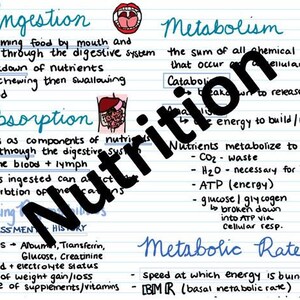 Ingestion
ming food by mouth and
through the digestive system
down of nutrients
chewing then swallowing
d
Absorption
s as components of nutri
through the digestive sys
he blood + lymph
s ingested can a
rbtion of me cations
Nutrition
SSESSMENT HISTORY
s - Albumin, Transferrin,
Glucose, Creatinine
d + electrolyte status
of weight gain/loss
e of supplements/vitamins
Metabolism
the sum of all chemical
that occur cellula
Catabolic
down to releas
energy to build/
Nutrients metabolize to
- CO2 - waste
- H2O - necessary for
- ATP (energy)
- glucose/glycogen
↳ broken down
into ATP via
cellular resp.
Metabolic Rate
- speed at which energy is burn
- BMR (basal metabolic rate)